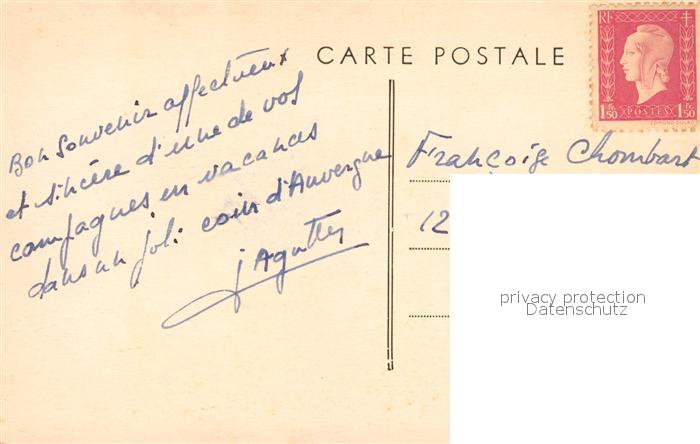 CARTE POSTALE
RF
1 Fr. 50
POSTES
1.50
Bon Souvenir affectueux
et sincère d'une de vos
compagnes en vacances
dans un joli coin d'Auvergne
Françoise Chombart
12
privacy protection
Datenschutz